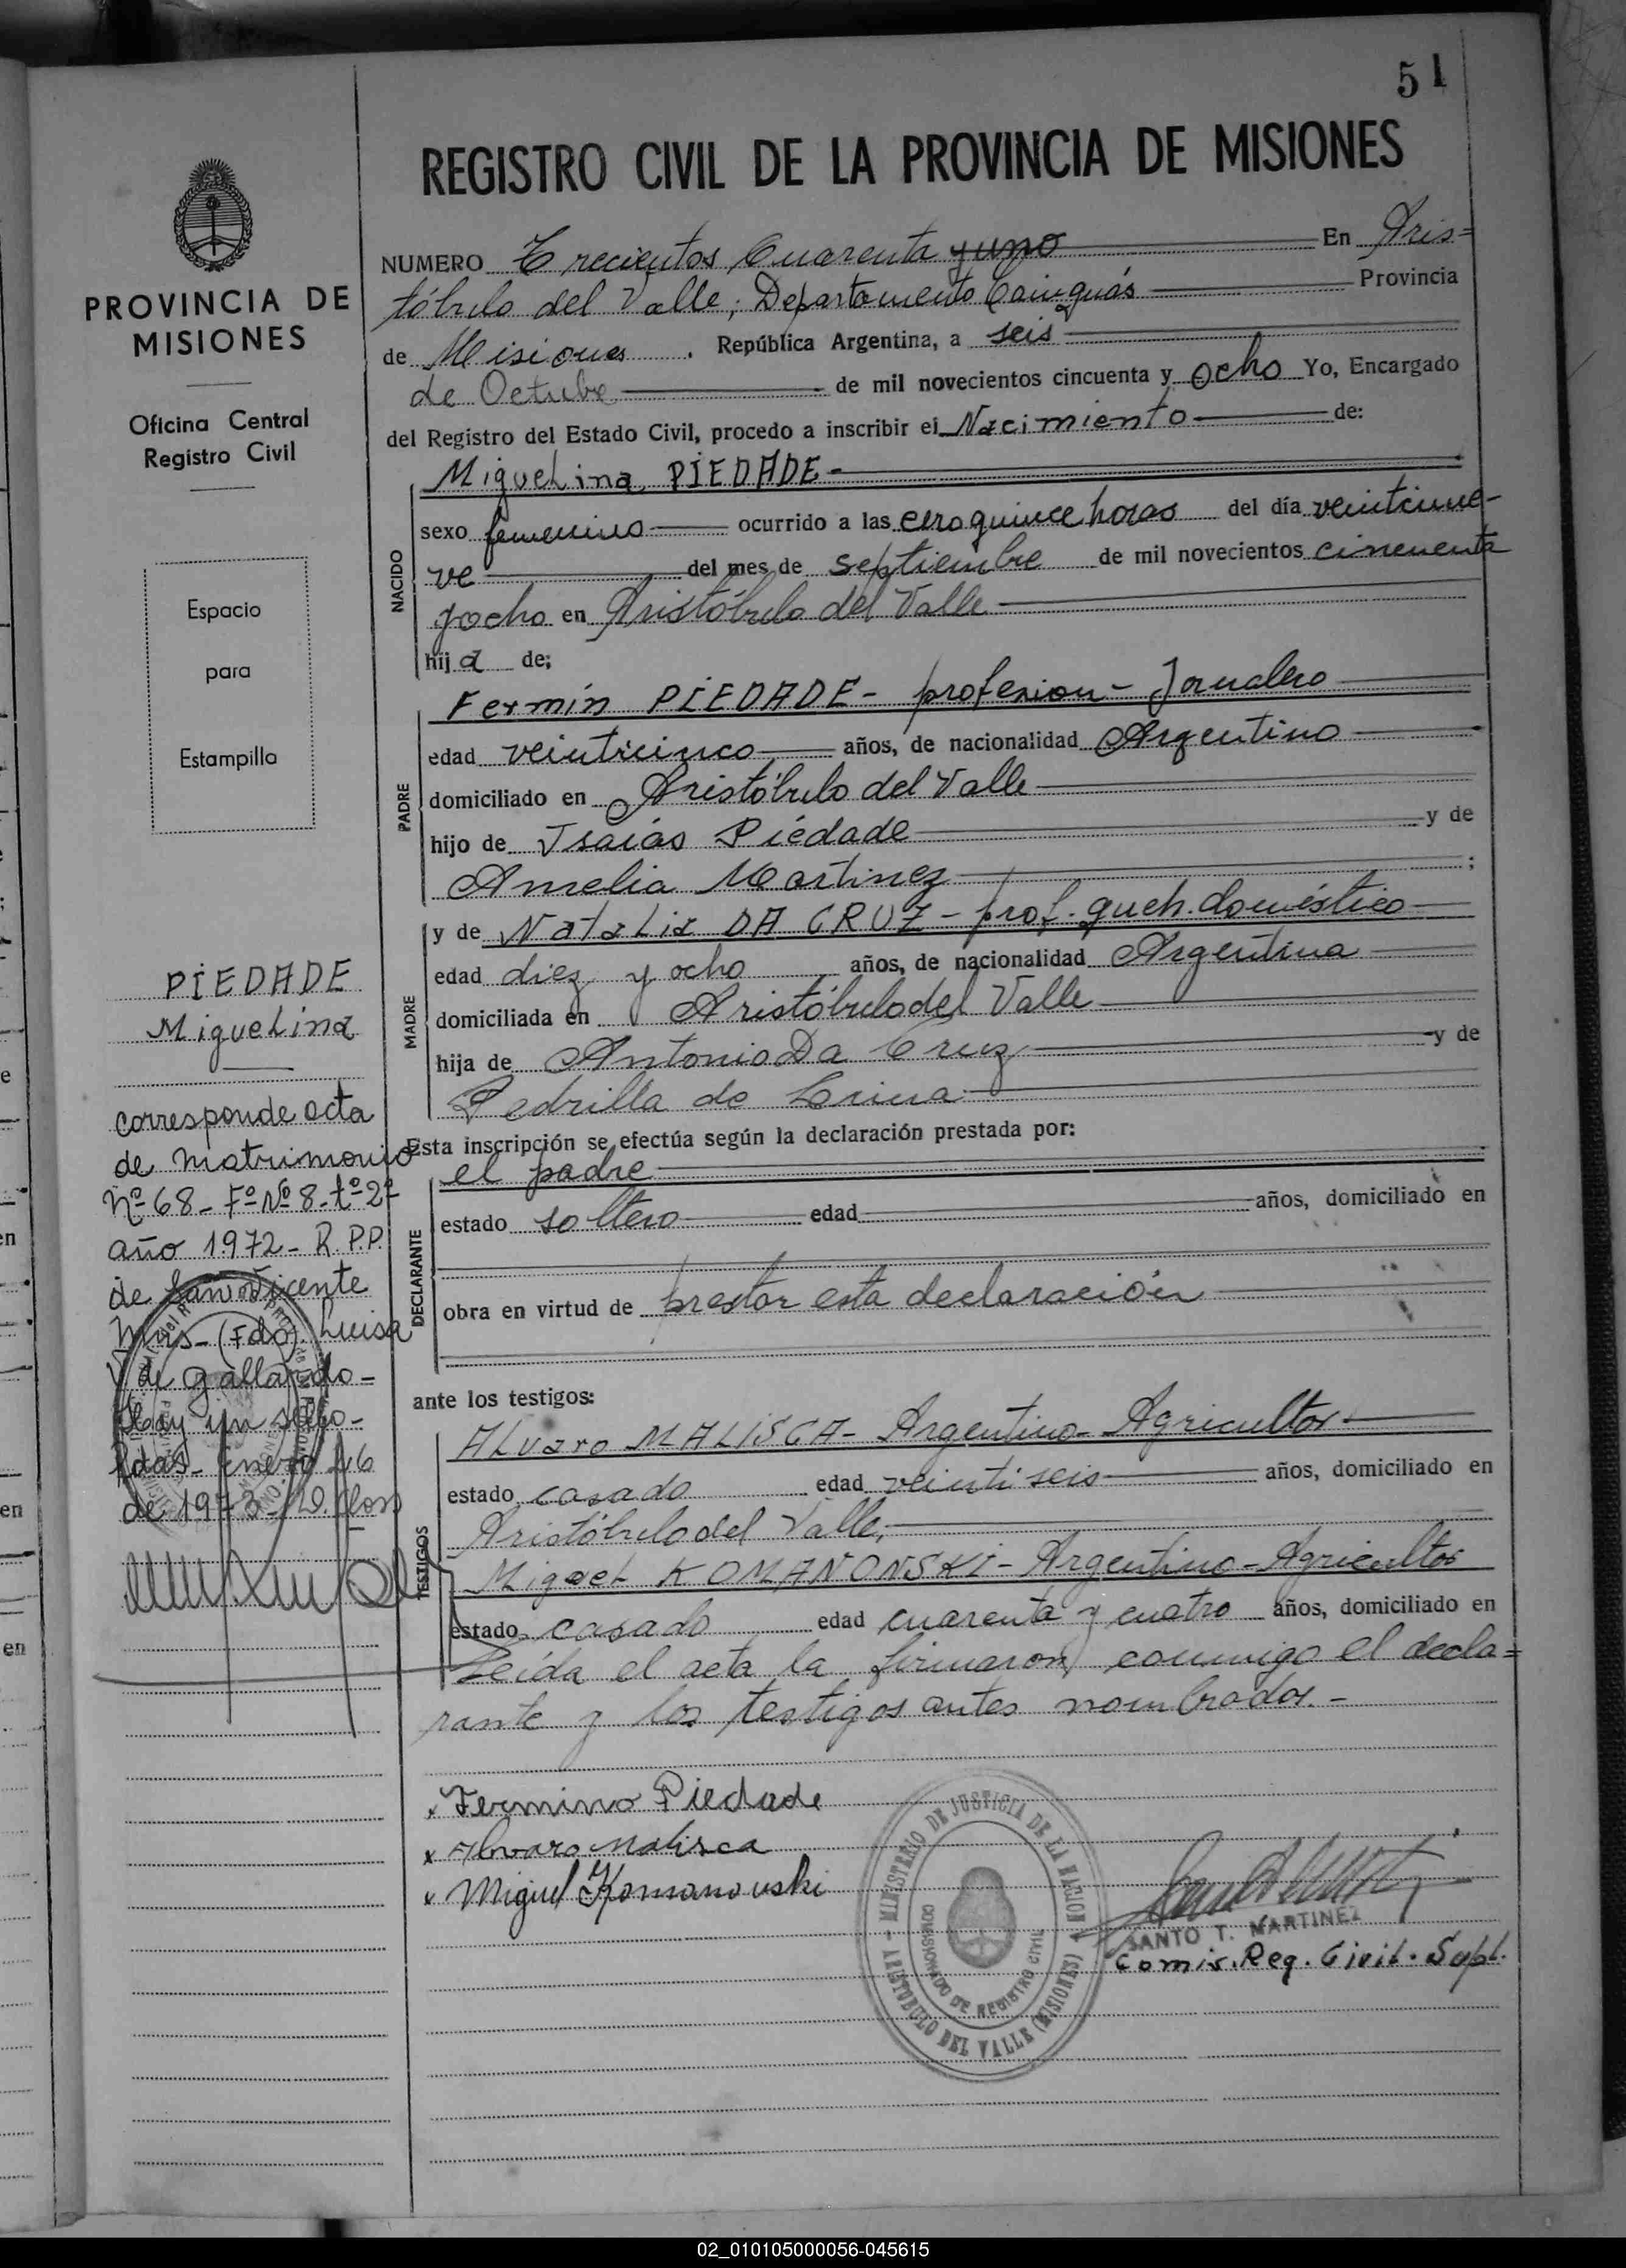 51
REGISTRO CIVIL DE LA PROVINCIA DE MISIONES
PROVINCIA DE
MISIONES
Oficina Central
Registro Civil
Espacio
para
Estampilla
NUMERO Trecientos Cuarenta y uno En Aris=
tóbulo del Valle; Departamento Cainguás Provincia
de Misiones. República Argentina, a seis
de Octubre de mil novecientos cincuenta y ocho Yo, Encargado
del Registro del Estado Civil, procedo a inscribir el Nacimiento de:
NACIDO
Miguelina PIEDADE-
sexo femenino ocurrido a las cero quince horas del día veintinue-
ve del mes de septiembre de mil novecientos cincuenta
y ocho en Aristóbulo del Valle
hij a de;
PADRE
Fermín PIEDADE- profesion- Jornalero
edad veinticinco años, de nacionalidad Argentino
domiciliado en Aristóbulo del Valle
hijo de Isaías Piedade y de
Amelia Martinez ;
MADRE
y de Natalia DA CRUZ- prof. queh. doméstico
edad diez y ocho años, de nacionalidad Argentina
domiciliada en Aristóbulo del Valle
hija de Antonio Da Cruz y de
Pedrilla de
Esta inscripción se efectúa según la declaración prestada por:
DECLARANTE
el padre
estado soltero edad años, domiciliado en
obra en virtud de prestar esta declaración
ante los testigos:
TESTIGOS
Alvaro MALISCA- Argentino- Agricultor
estado casado edad veintiseis años, domiciliado en
Aristóbulo del Valle,
Miguel KOMAÑONSKI- Argentino- Agricultor
estado casado edad cuarenta y cuatro años, domiciliado en
Leída el acta la firmaron conmigo el decla=
rante y los testigos antes nombrados.-
x Fermino Piedade
x Alvaro Malisca
x Miguel Komanouski
MINISTERIO DE JUSTICIA DE LA NACION
ARISTOBULO DEL VALLE (MISIONES)
COMISIONADO DE REGISTRO CIVIL
SANTO T. MARTINEZ
Comis. Reg. Civil. Supl.
PIEDADE
Miguelina
corresponde acta
de matrimonio
Nº 68- Fº Nº 8- tº 2º
año 1972- R.P.P.
de San Vicente
Mns- (Fdo). Luisa
V de Gallardo-
Hay un sello-
Pdas- Enero 16
de 1973-
02_010105000056-045615